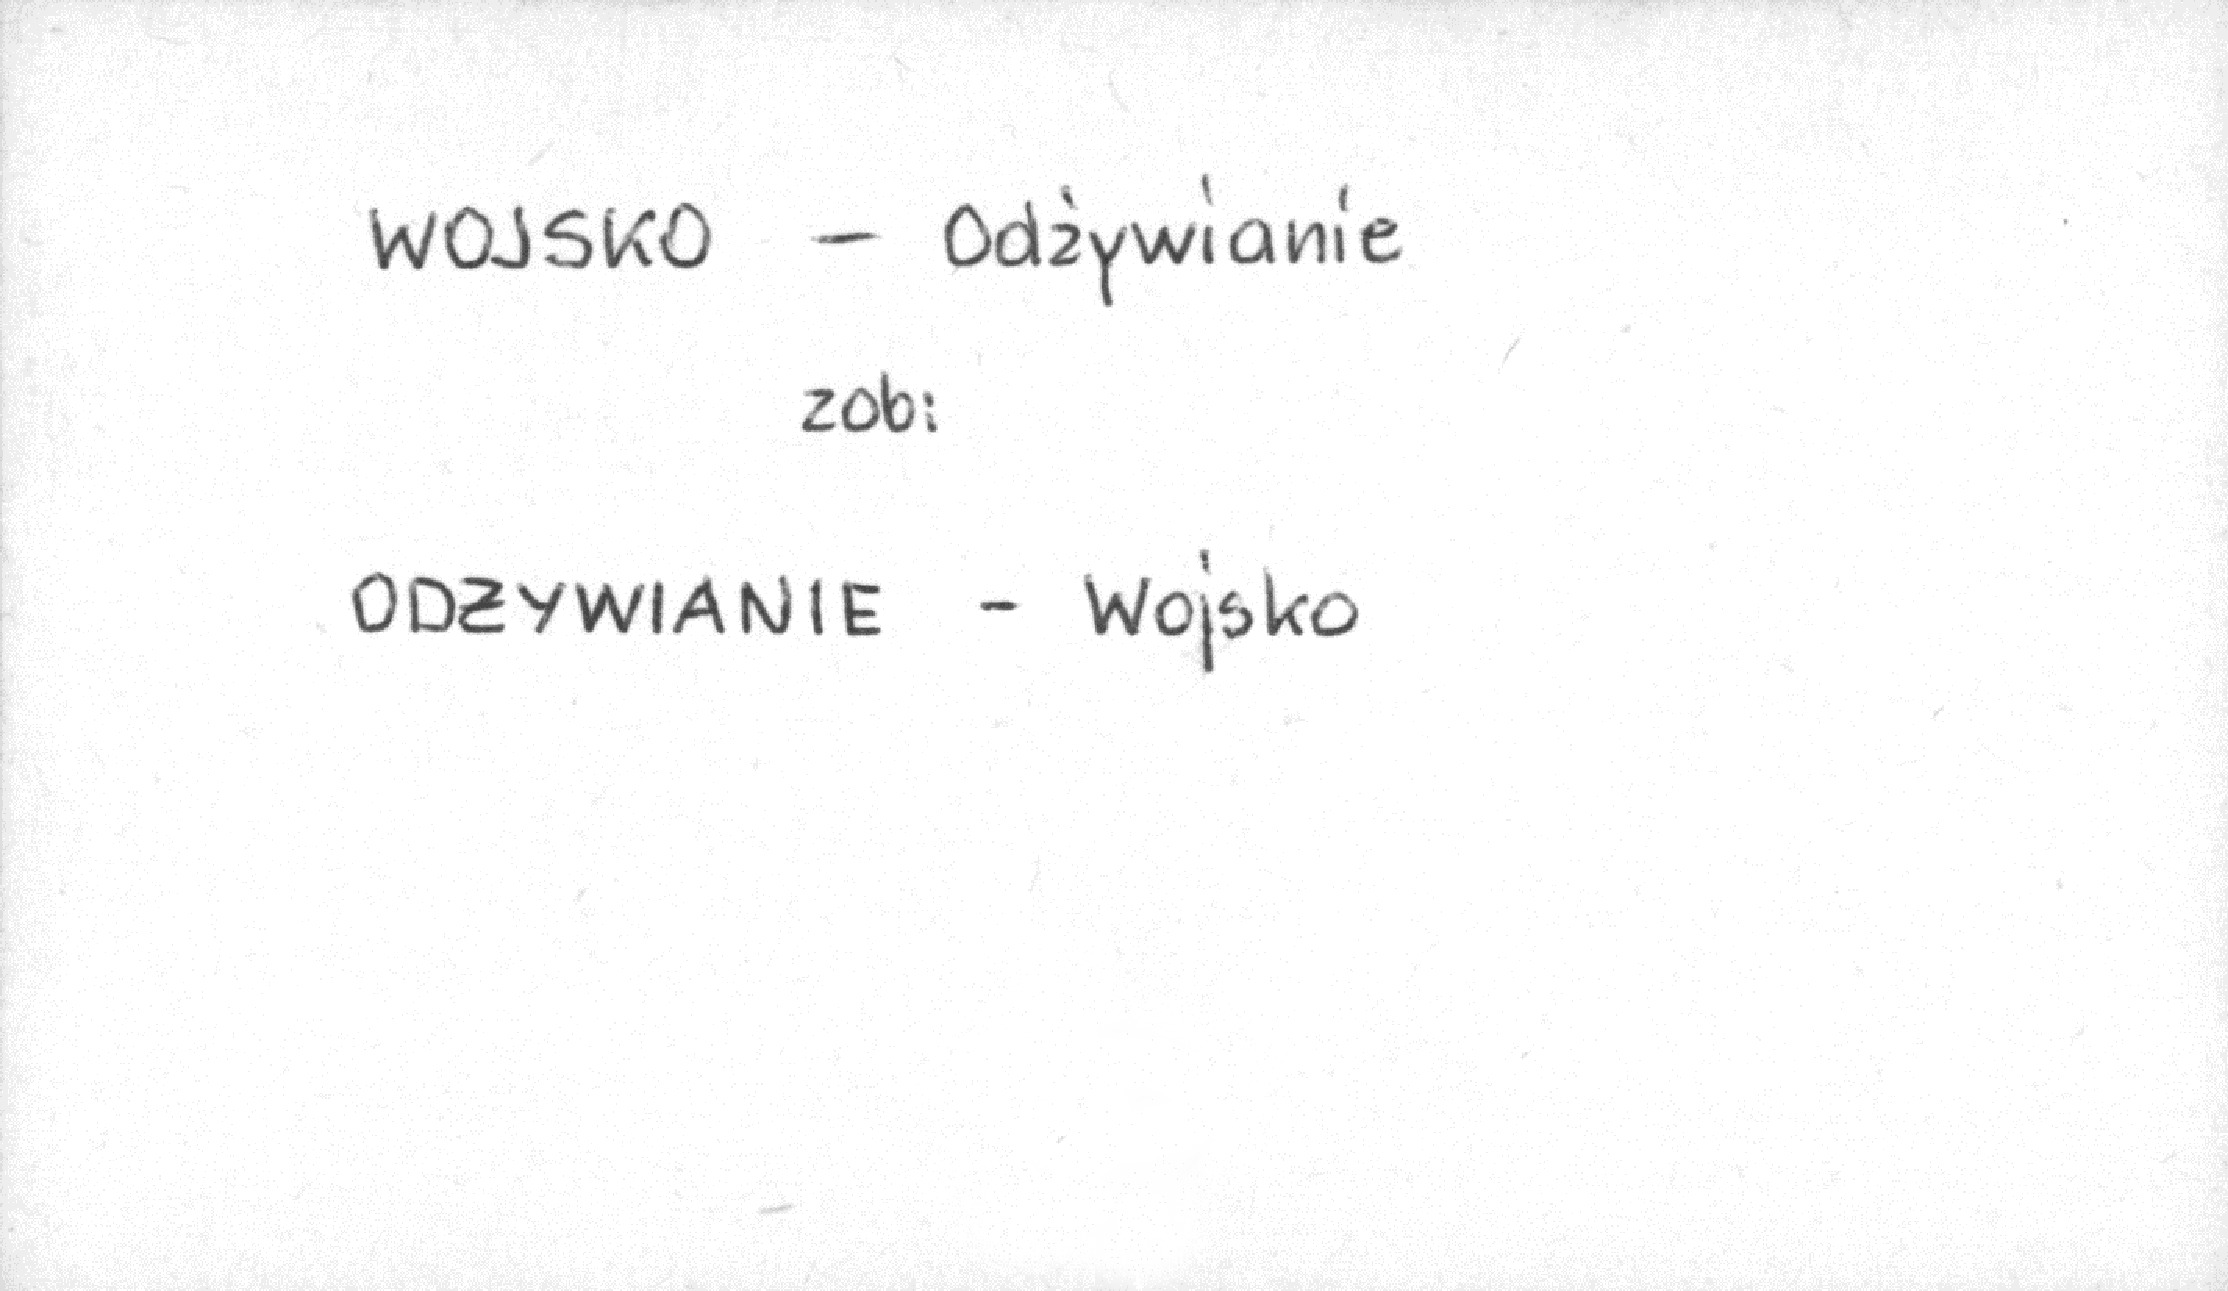 WOJSKO - Odżywianie
zob:
ODŻYWIANIE - Wojsko